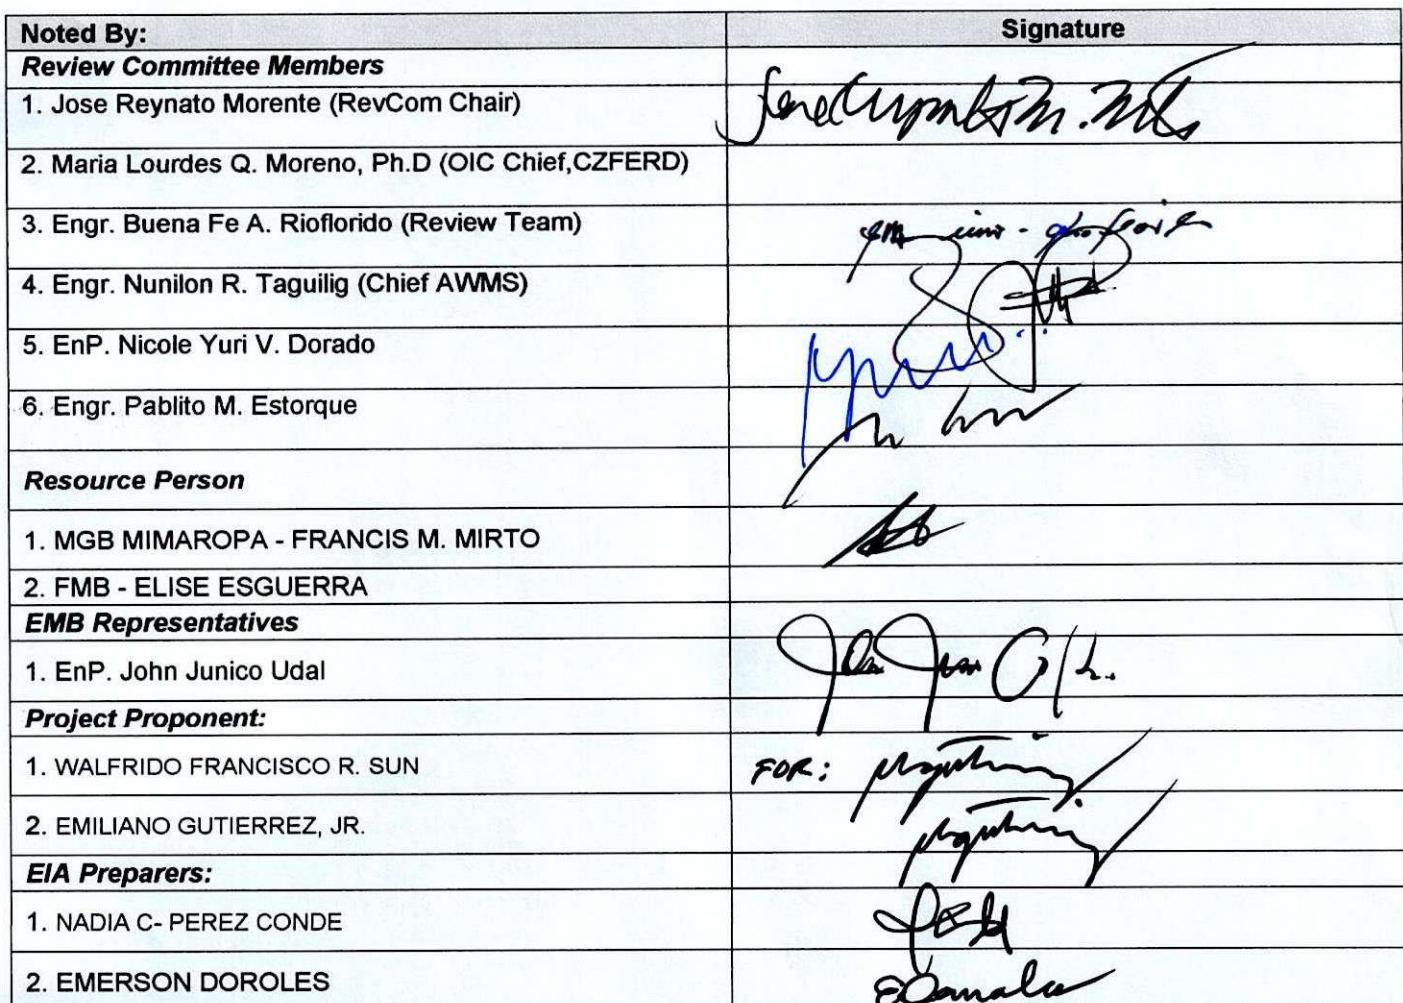 Noted By: Signature
Review Committee Members
1. Jose Reynato Morente (RevCom Chair)
2. Maria Lourdes Q. Moreno, Ph.D (OIC Chief,CZFERD)
3. Engr. Buena Fe A. Rioflorido (Review Team)
4. Engr. Nunilon R. Taguilig (Chief AWMS)
5. EnP. Nicole Yuri V. Dorado
6. Engr. Pablito M. Estorque
Resource Person
1. MGB MIMAROPA - FRANCIS M. MIRTO
2. FMB - ELISE ESGUERRA
EMB Representatives
1. EnP. John Junico Udal
Project Proponent:
1. WALFRIDO FRANCISCO R. SUN FOR:
2. EMILIANO GUTIERREZ, JR.
EIA Preparers:
1. NADIA C- PEREZ CONDE
2. EMERSON DOROLES